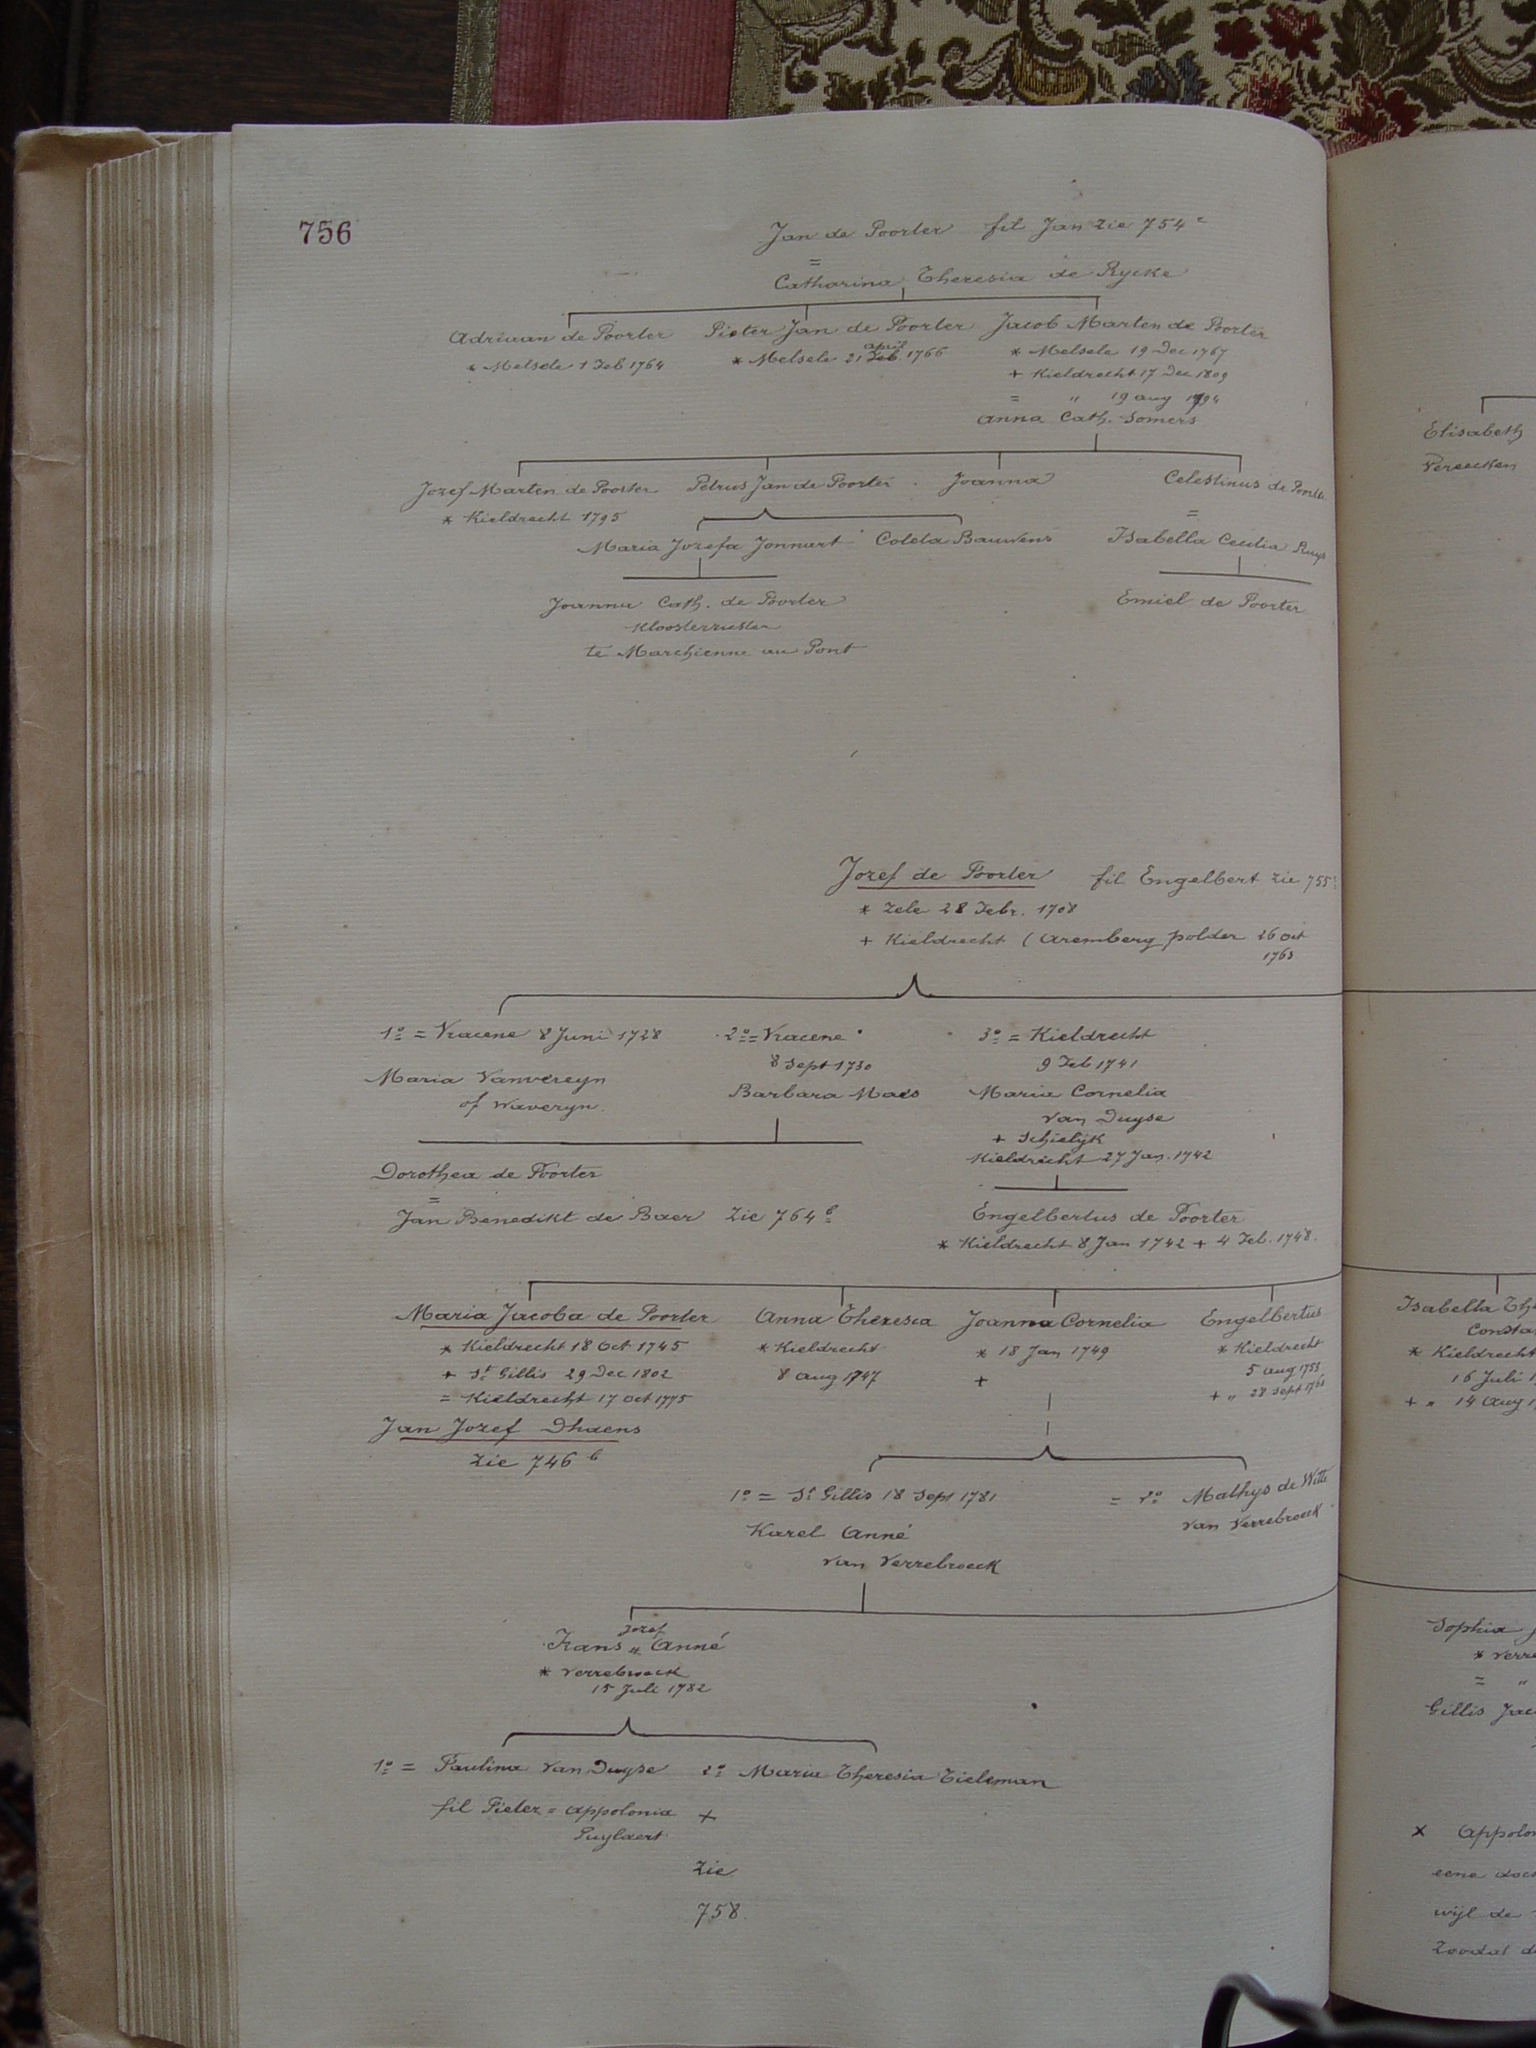 756
Jan de Poorter fil Jan zie 754 c
=
Catharina Theresia de Rycke
Adriaan de Poorter Pieter Jan de Poorter Jacob Marten de Poorter
* Melsele 1 Feb 1764 * Melsele 21 Feb. april 1766 * Melsele 19 Dec 1767
+ Kieldrecht 17 Dec 1809
= " 19 aug 1794
Anna Cath. Somers
Jozef Marten de Poorter Petrus Jan de Poorter Joanna Celestinus de Poorter
* Kieldrecht 1795 =
Maria Jozefa Jonnart Coleta Bauwens Isabella Cecilia Ruys
Joanna Cath. de Poorter Emiel de Poorter
Kloosterzuster
te Marchienne au Pont
Jozef de Poorter fil Engelbert zie 755
* Zele 28 Febr. 1708
+ Kieldrecht (Aremberg polder 26 oct
1763
1º = Vracene 8 Juni 1728 2º = Vracene 3º = Kieldrecht
8 Sept 1730 9 Feb 1741
Maria Vanvereyn Barbara Maes Maria Cornelia
of Waveryn. van Duyse
+ Schielijk
Kieldrecht 27 Jan. 1742
Dorothea de Poorter
=
Jan Benedikt de Baer zie 764 b Engelbertus de Poorter
* Kieldrecht 8 Jan 1742 + 4 Feb. 1748.
Maria Jacoba de Poorter Anna Theresia Joanna Cornelia Engelbertus Isabella
* Kieldrecht 18 Oct 1745 * Kieldrecht * 18 Jan 1749 * Kieldrecht * Kieldrecht
+ St Gillis 29 Dec 1802 8 Aug 1747 + 5 Aug 1753 16 Juli
= Kieldrecht 17 Oct 1775 + " 28 Sept + " 14 Aug
Jan Jozef Dhaens
zie 746 b
1º = St Gillis 18 Sept 1781 = 2º Mathys de Witte
Karel Anné van Verrebroeck
van Verrebroeck
Jozef
Frans " Anné
* Verrebroeck
15 Juli 1782
1º = Paulina van Duyse 2º Maria Theresia Tieleman
fil Pieter = Appolonia +
Puylaert
zie
758
Elisabeth
Vereecken
Sophia
= "
Gillis
x
wijl de